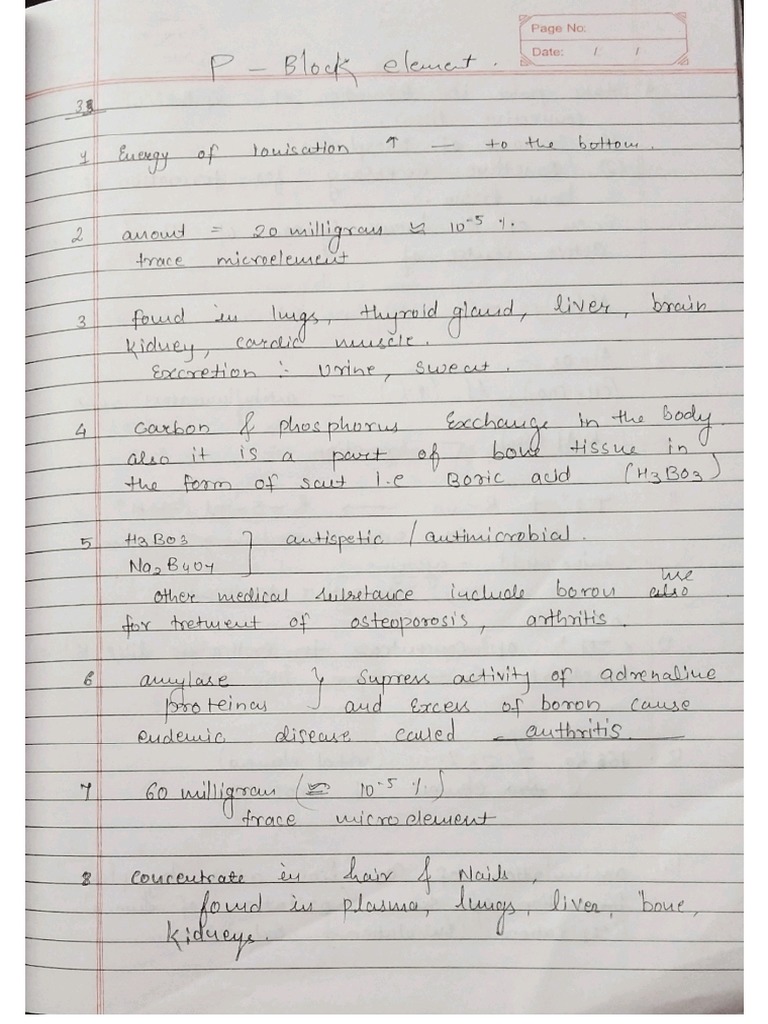 Page No:
Date: / /
P - Block element.
1 Energy of Ionisation ↑ — to the bottom.
2 amount = 20 milligram ≃ 10-5 %.
trace microelement
3 found in lungs, thyroid gland, liver, brain
kidney, cardic muscle.
Excretion :- Urine, sweat.
4 Carbon & phosphorus Exchange in the body
also it is a part of bone tissue in
the form of salt I.e Boric acid (H3BO3)
5 H3BO3 } antispetic / antimicrobial.
Na2B4O7
other medical substance include boron also
for tretment of osteoporosis, arthritis.
6 amylase } supress activity of adrenaline
proteinas and Excess of boron cause
endemic disease called arthritis
7 60 milligram (≃ 10-5 %)
trace microelement
8 concentrate in hair & Nails,
found in plasma, lungs, liver, bone,
kidneys.